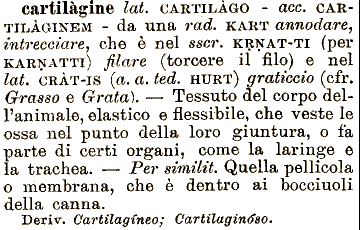 cartilàgine lat. CARTILÀGO - acc. CAR-
TILÀGINEM - da una rad. KART annodare,
intrecciare, che è nel sscr. KṚṆAT-TI (per
KARṆATTI) filare (torcere il filo) e nel
lat. CRÀT-IS (a. a. ted. HURT) graticcio (cfr.
Grasso e Grata). — Tessuto del corpo del-
l'animale, elastico e flessibile, che veste le
ossa nel punto della loro giuntura, o fa
parte di certi organi, come la laringe e
la trachea. — Per similit. Quella pellicola
o membrana, che è dentro ai bocciuoli
della canna.
Deriv. Cartilagíneo; Cartilaginóso.